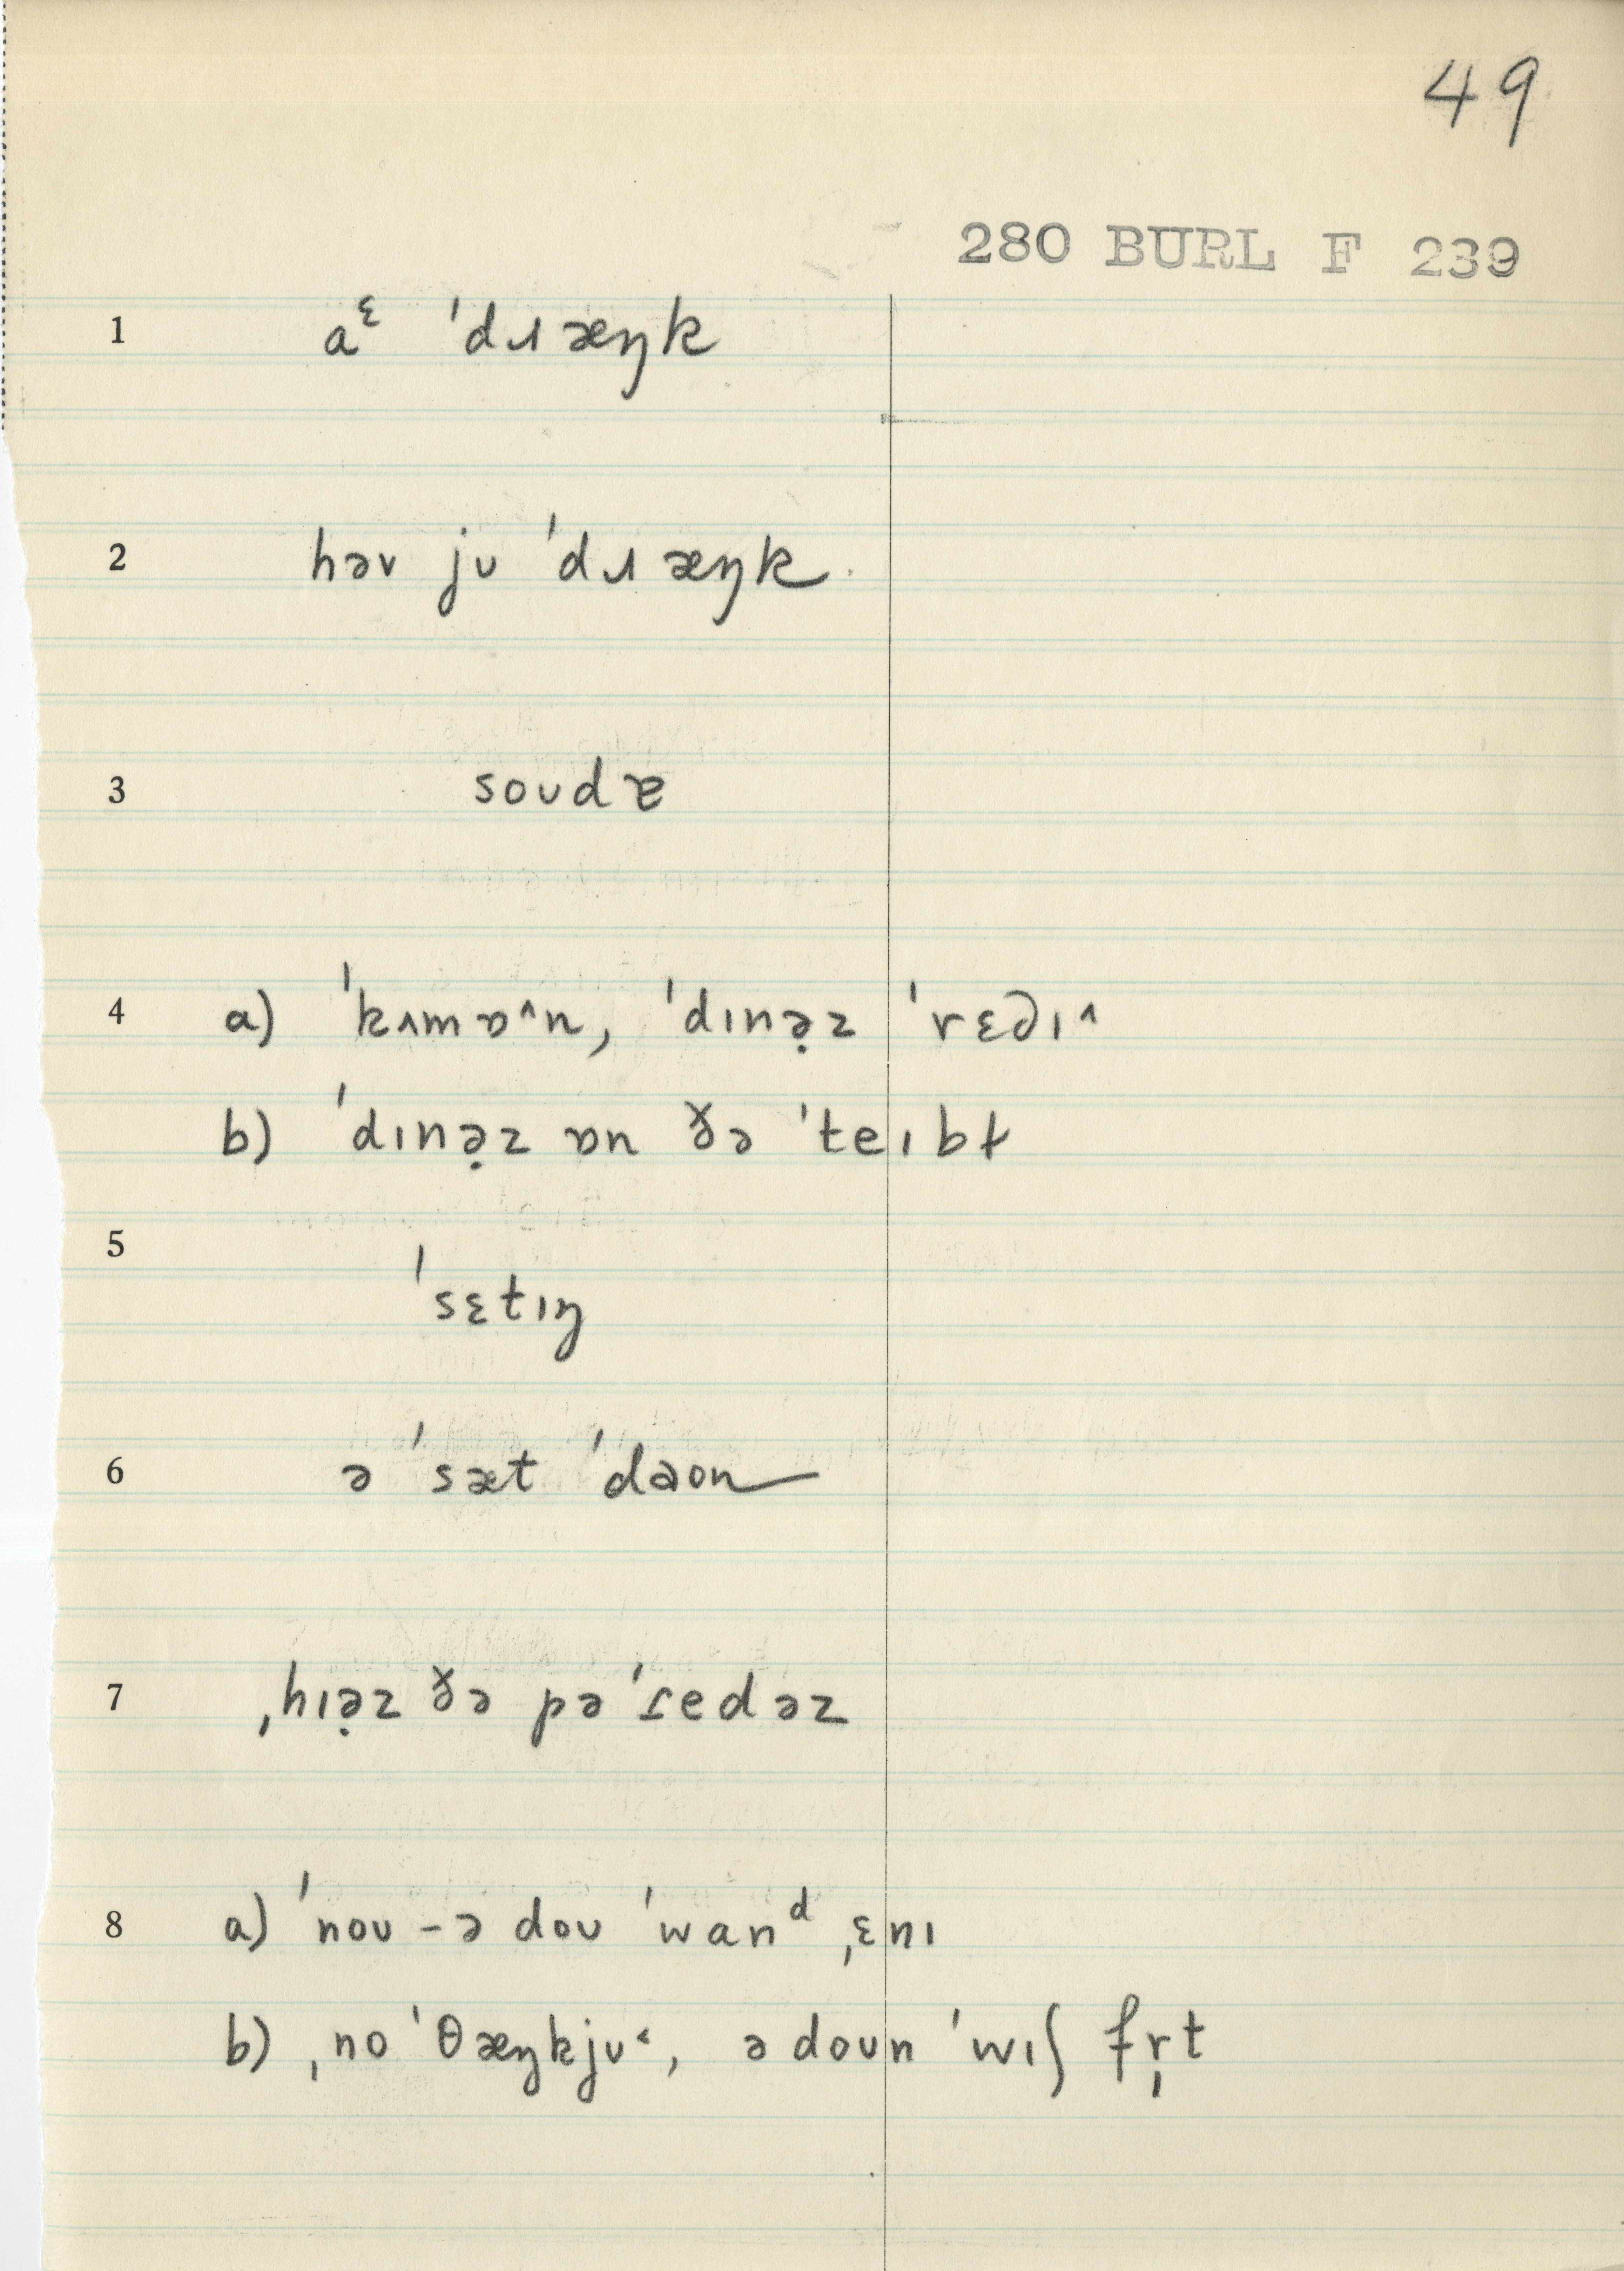 49
280 BURL F 239
1 aᵋ ˈdɹæŋk
2 həv jʊ ˈdɹæŋk
3 soʊdɐ
4 a) ˈkʌmɒ^n, ˈdɪnə̣z ˈrɛ∂ɪ^
b) ˈdɪnə̣z ɒn ðə ˈteɪbɫ
5 ˈsɛtɪŋ
6 ə ˈsæt ˈdaʊn
7 ˌhɪə̣z ðə pəˈɾedəz
8 a) ˈnoʊ – ə doʊ ˈwanᵈ ˌɛnɪ
b) ˌno ˈθæŋkjʊ˂, ə doʊn ˈwɪʃ fr̩t